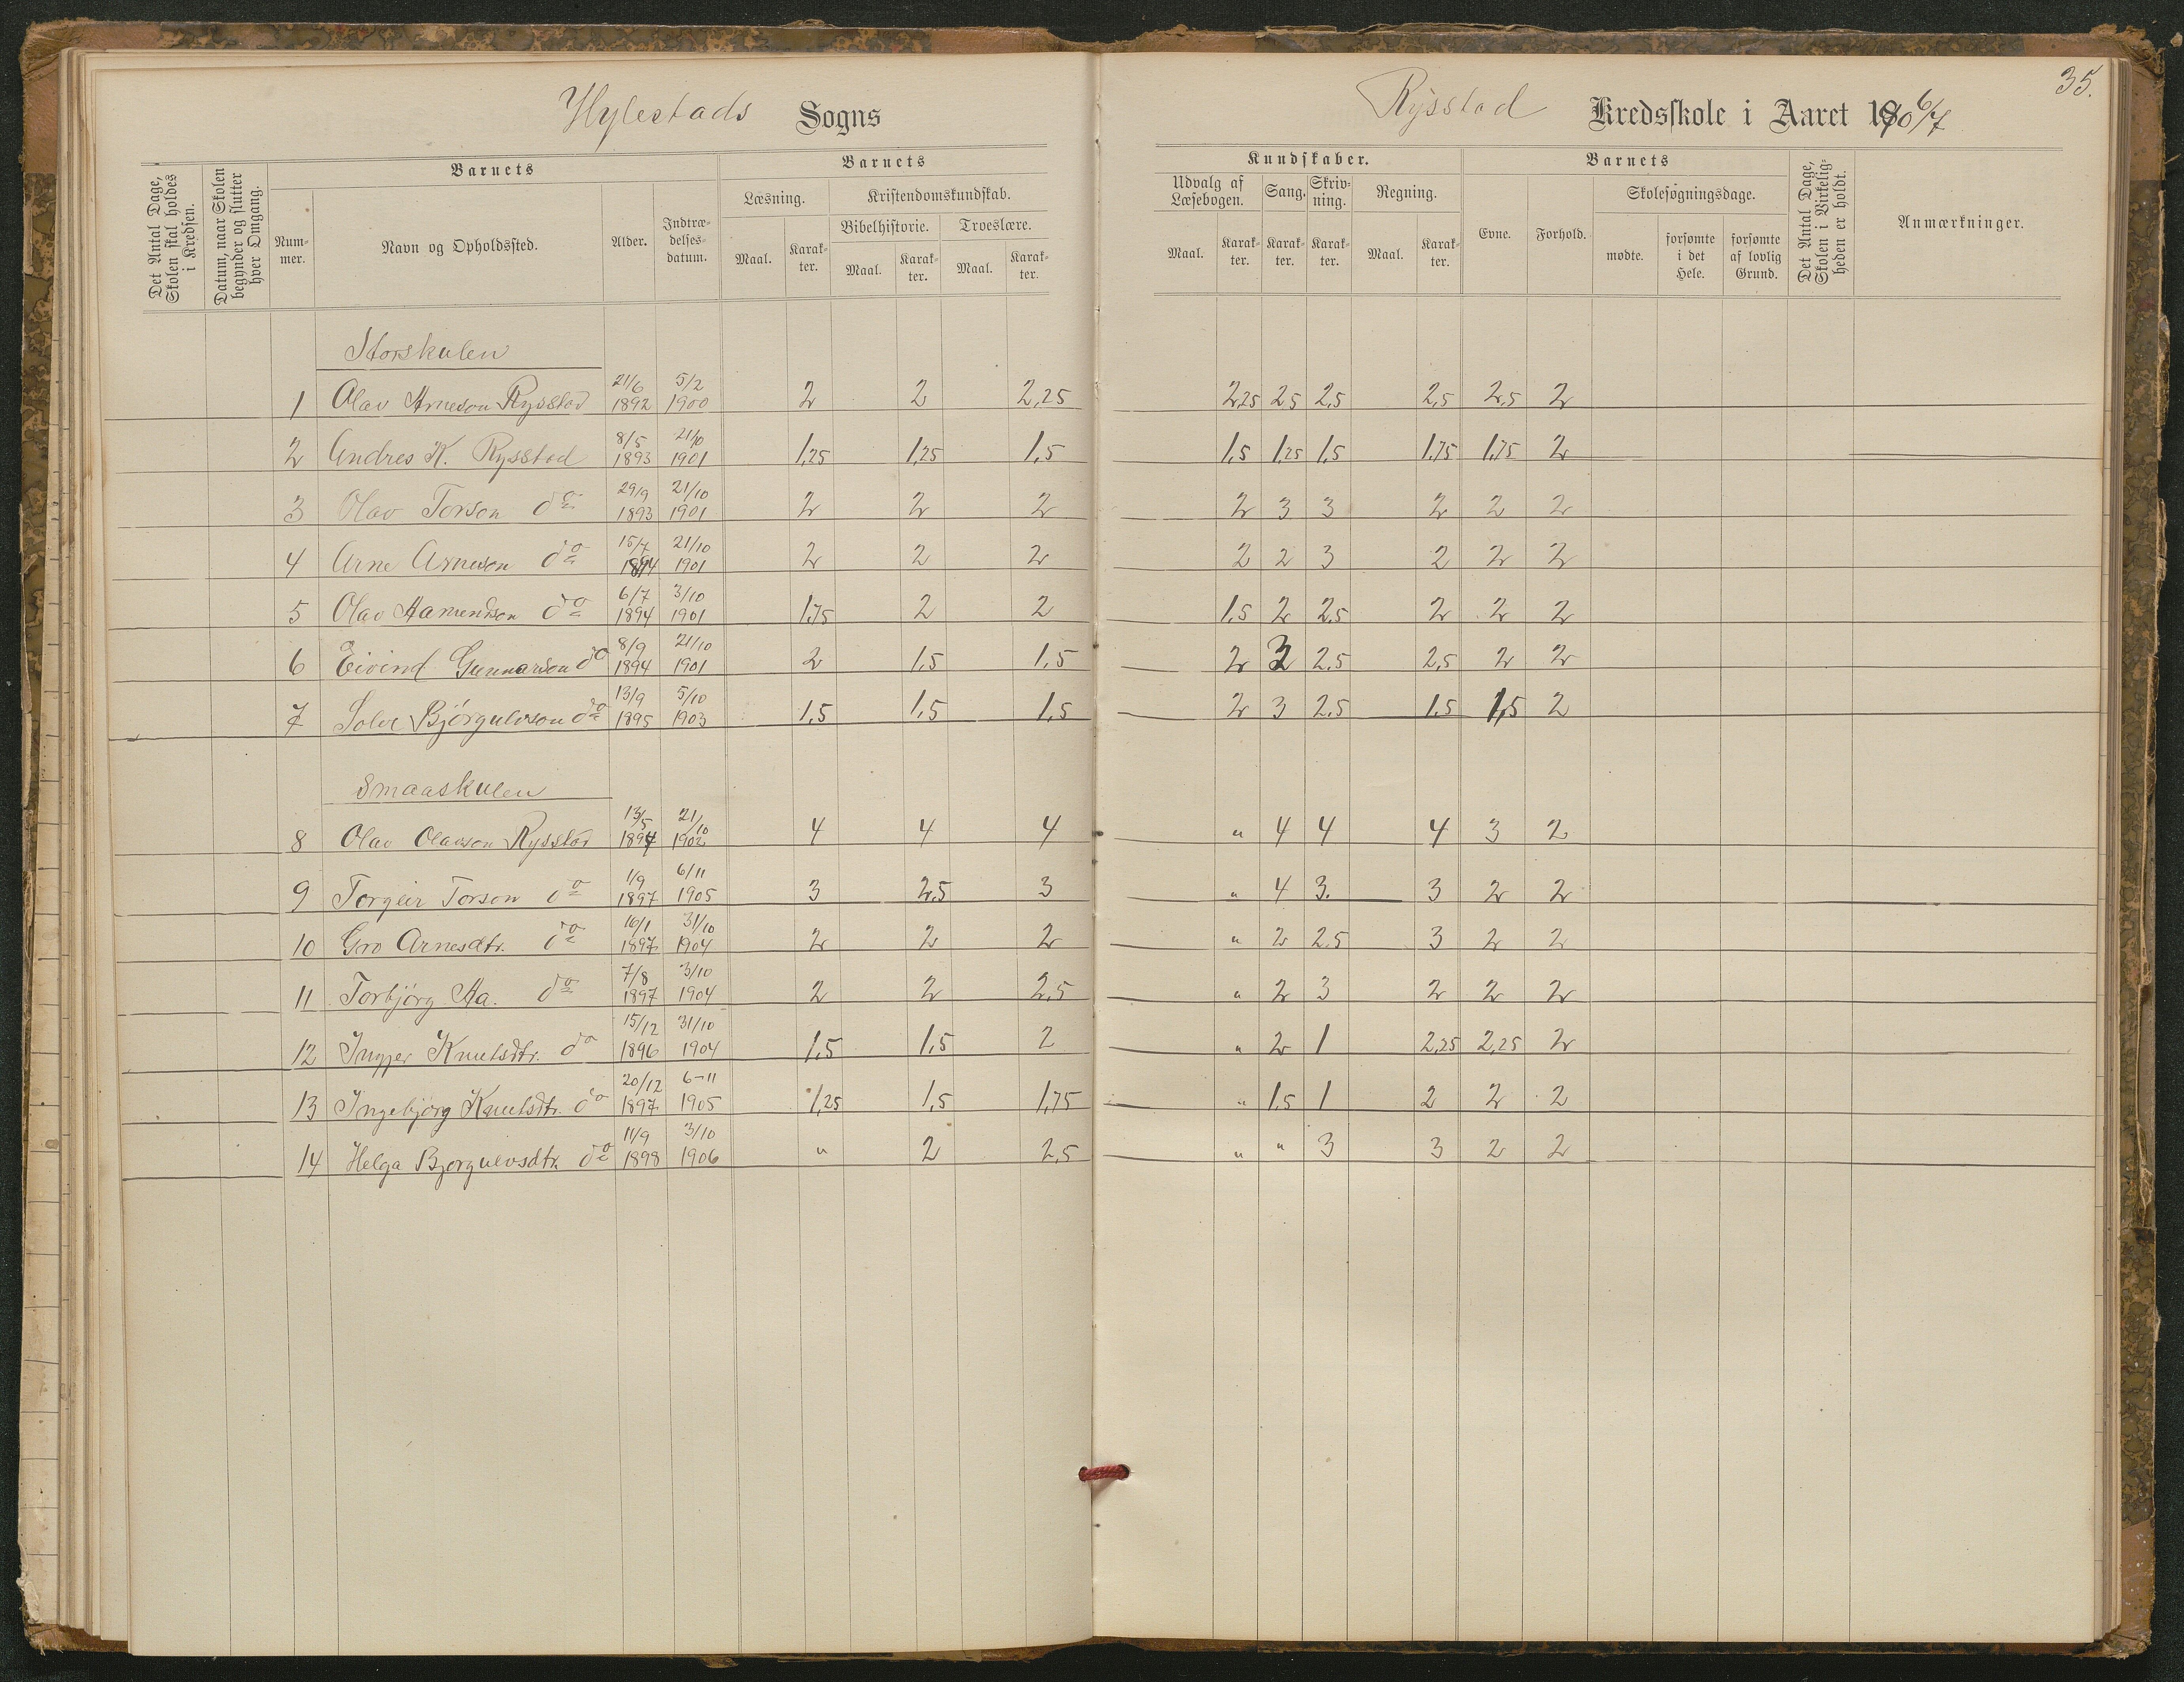 35.
Hylestads Sogns Rysstad Kredsskole i Aaret 190 6/7
Det Antal Dage, Skolen skal holdes i Kredsen.
Datum, naar Skolen begynder og slutter hver Omgang.
Barnets
Nummer.
Navn og Opholdssted.
Alder.
Indtrædelsesdatum.
Barnets Kundskaber.
Læsning.
Maal. Karakter.
Kristendomskundskab.
Bibelhistorie.
Maal. Karakter.
Troeslære.
Maal. Karakter.
Udvalg af Læsebogen.
Maal. Karakter.
Sang.
Karakter.
Skrivning.
Karakter.
Regning.
Maal. Karakter.
Barnets
Evne. Forhold.
Skolesøgningsdage.
mødte. forsømte i det Hele. forsømte af lovlig Grund.
Det Antal Dage, Skolen i Virkeligheden er holdt.
Anmærkninger.
Storskulen
1 Olav Arneson Rysstad 21/6 1892 5/2 1900 2 2 2,25 2,25 2,5 2,5 2,5 2,5 2
2 Andres K. Rysstad 8/5 1893 21/10 1901 1,25 1,25 1,5 1,5 1,25 1,5 1,75 1,75 2
3 Olav Torson do 29/9 1893 21/10 1901 2 2 2 2 3 3 2 2 2
4 Arne Arneson do 15/7 1894 21/10 1901 2 2 2 2 2 3 2 2 2
5 Olav Aamundson do 6/7 1894 3/10 1901 1,75 2 2 1,5 2 2,5 2 2 2
6 Eivind Gunnarson do 8/9 1894 21/10 1901 2 1,5 1,5 2 3 2,5 2,5 2 2
7 Solve Bjørgulvson do 13/9 1895 5/10 1903 1,5 1,5 1,5 2 3 2,5 1,5 1,5 2
Smaaskulen
8 Olav Olavson Rysstad 13/5 1894 21/10 1902 4 4 4 " 4 4 4 3 2
9 Torgeir Torson do 1/9 1897 6/11 1905 3 2,5 3 " 4 3. 3 2 2
10 Gro Arnesdtr. do 16/1 1897 31/10 1904 2 2 2 " 2 2,5 3 2 2
11 Torbjørg Aa. do 7/8 1897 3/10 1904 2 2 2,5 " 2 3 2 2 2
12 Ingjer Knutsdtr. do 15/12 1896 31/10 1904 1,5 1,5 2 " 2 1 2,25 2,25 2
13 Ingebjørg Knutsdtr. do 20/12 1897 6-11 1905 1,25 1,5 1,75 " 1,5 1 2 2 2
14 Helga Bjørgulvsdtr. do 11/9 1898 3/10 1906 " 2 2,5 " " 3 3 2 2